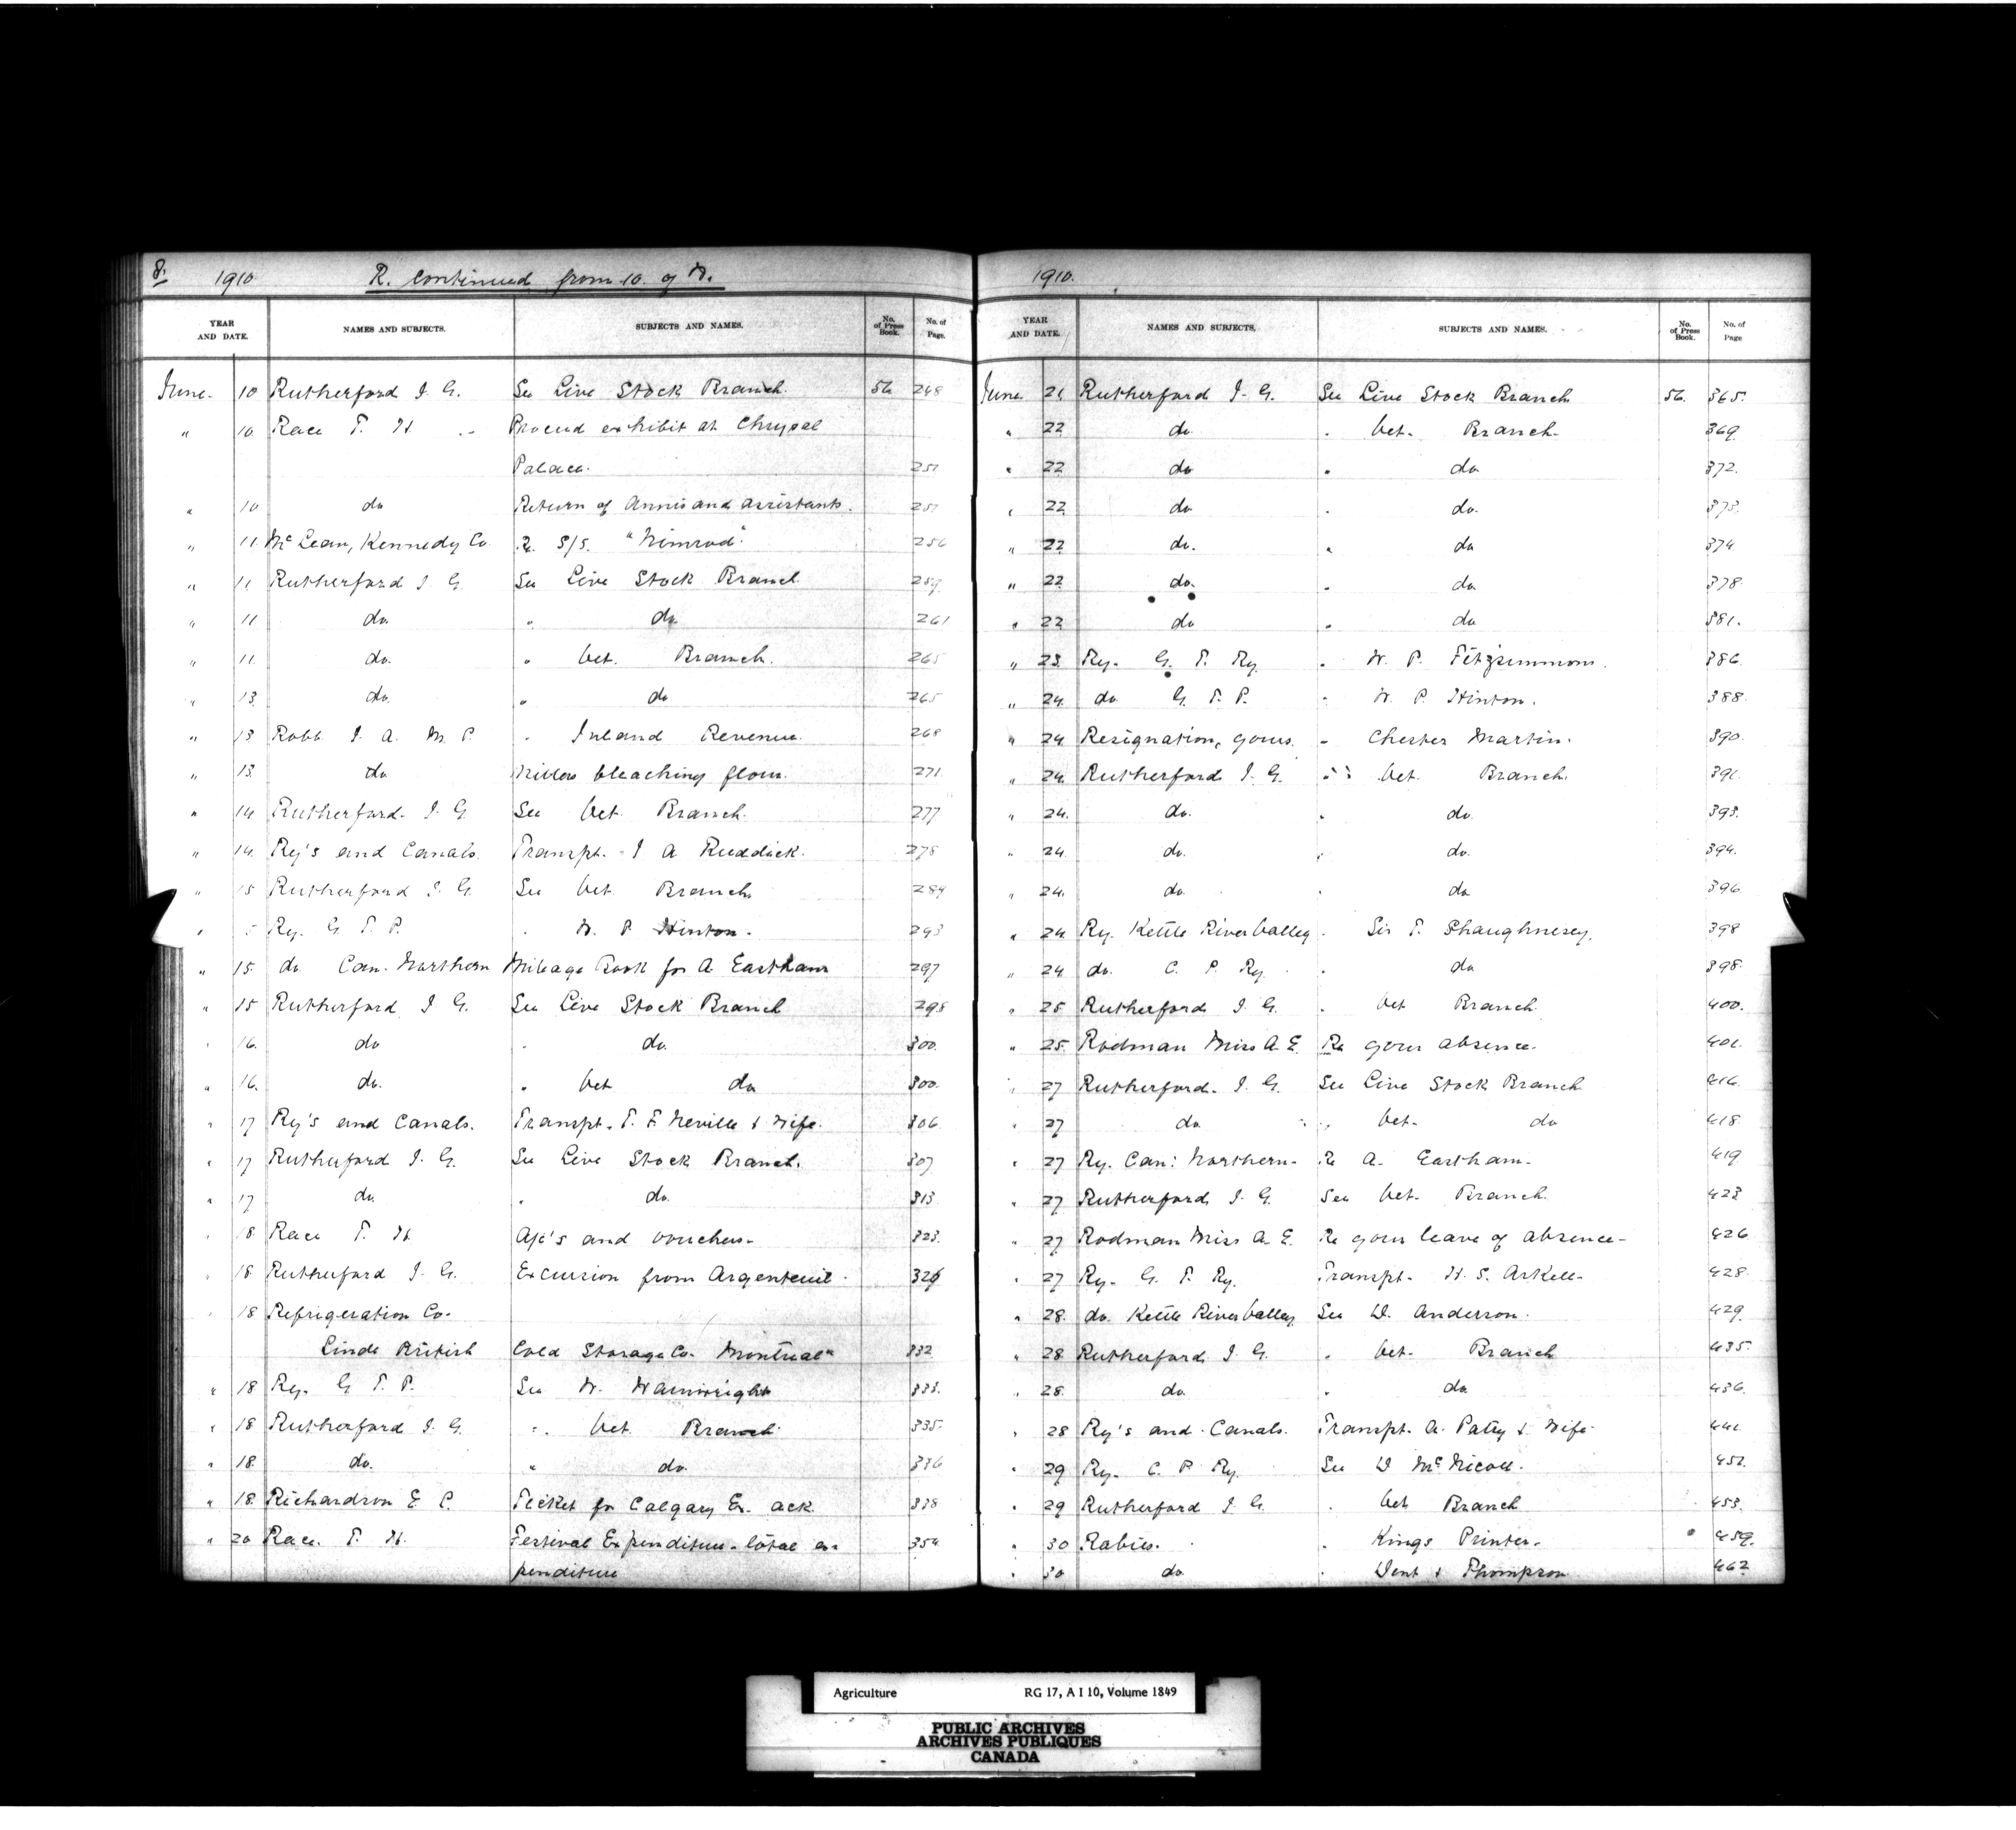 8. 1910 R. continued from 10. of N.
YEAR AND DATE. NAMES AND SUBJECTS. SUBJECTS AND NAMES. No. of Press Book. No. of Page.
June. 10 Rutherford J. G. See Live Stock Branch. 56 248
" 10. Race T. H. Proceed exhibit at Chrystal
Palace. 251
" 10 do Return of Annis and assistants. 251
" 11. McLean, Kennedy Co. Re S/S. "Nimrod". 256
" 11 Rutherford J G. See Live Stock Branch. 259.
" 11 do. " do. 261
" 11. do. " Vet. Branch. 265
" 13. do. " do 265
" 13 Robb J. A. M. P. " Inland Revenue. 268
" 13. do Millers bleaching flour. 271.
" 14 Rutherford. J. G See Vet. Branch. 277
" 14. Ry's and Canals. Transpt. J A Ruddick. 278
" 15 Rutherford J. G. See Vet. Branch 284
" 15 Ry. G T. P. " W. P Hinton. 293
" 15. do Can. Northern Mileage Book for A. Eastham 297
" 15 Rutherford J G. See Live Stock Branch 298
" 16. do " do. 300.
" 16. do. " Vet do 300.
" 17 Ry's and Canals. Transpt. T. F. Neville & Wife. 306
" 17 Rutherford J. G. See Live Stock Branch. 307
" 17 do. " do. 313.
" 18. Race T. H A/c's and vouchers. 323.
" 18 Rutherford J. G. Excursion from Argenteuil. 326
" 18 Refrigeration Co.
Linde British Cold Storage Co. Montreal" 332
" 18 Ry. G T. P. See W. Wainwright 333.
" 18 Rutherford J. G. " Vet. Branch. 335.
" 18. do. " do. 336
" 18. Richardson E C. Ticket for Calgary Ex. ack. 338
" 20 Race. T. H. Festival Expenditure - total ex-
penditure 354
1910.
YEAR AND DATE. NAMES AND SUBJECTS. SUBJECTS AND NAMES. No. of Press Book. No. of Page
June 21. Rutherford J. G. See Live Stock Branch 56. 365.
" 22 do. " Vet. Branch. 369.
" 22 do " do. 372.
" 22 do " do. 373.
" 22 do. " do 374
" 22 do. " do 378.
" 22 do " do 381.
" 23. Ry. G. T. Ry. " W. P. Fitzsimmons. 386.
" 24. do. G. T. P. " W. P. Hinton. 388.
" 24 Resignation, yours. " Chester Martin. 390.
" 24. Rutherford J. G. " Vet. Branch. 391.
" 24. do. " do. 393.
" 24 do. " do. 394.
" 24. do. " do 396
" 24. Ry. Kettle River Valley. " Sir T. Shaughnessy. 398
" 24 do. C. P. Ry. " do 398.
" 25 Rutherford J. G. " Vet Branch. 400.
" 25. Rodman Miss A. E. Re your absence. 401.
" 27 Rutherford. J. G. See Live Stock Branch 416.
" 27 do " Vet. do 418.
" 27 Ry. Can: Northern. Re A. Eastham. 419
" 27 Rutherford J. G. See Vet. Branch. 423
" 27 Rodman Miss A. E. Re your leave of absence. 426
" 27 Ry. G. T. Ry. Transpt. H. S. Arkell. 428.
" 28. do. Kettle River Valley See D. Anderson. 429.
" 28. Rutherford J. G. " Vet. Branch 435.
" 28. do. " do. 436.
" 28 Ry's and Canals. Transpt. A. Patry & Wife. 441.
" 29 Ry. C. P. Ry. See D McNicoll. 451.
" 29 Rutherford J. G. " Vet Branch 453.
" 30 Rabies. " Kings Printer. 459.
" 30 do. " Dent & Thompson 462
Agriculture RG 17, A I 10, Volume 1849
PUBLIC ARCHIVES
ARCHIVES PUBLIQUES
CANADA